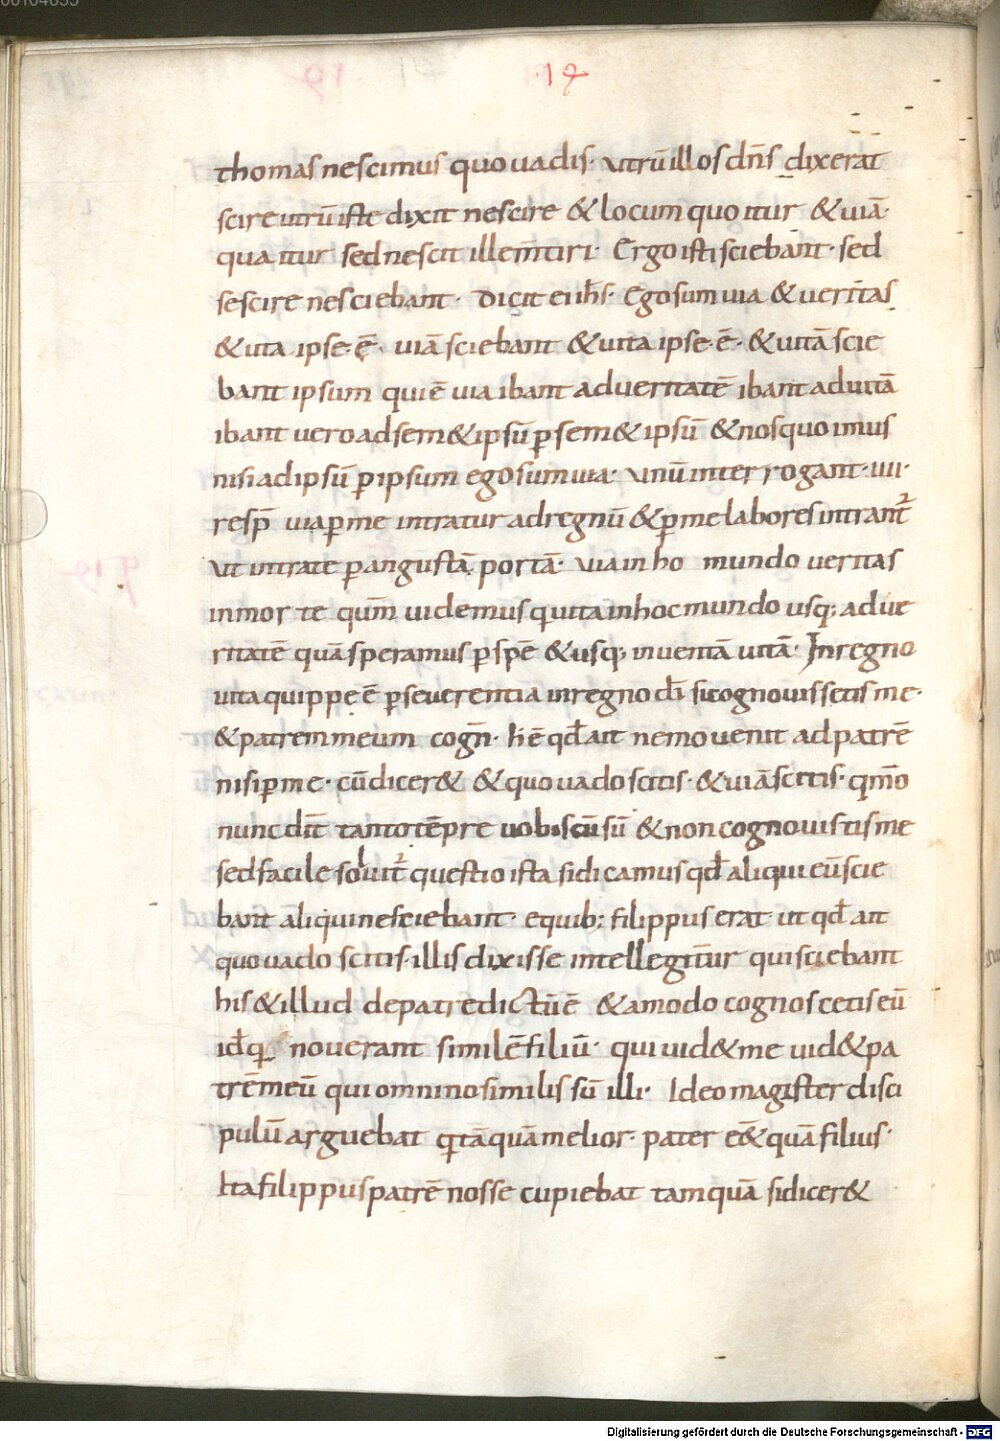 19
thomas nescimus quo uadis· utrū illos dn̄s dixerat
scire utrū iste dixit nescire & locum quo itur & uiā·
qua itur sed nescit illem̄tiri· Ergo isti sciebant· sed
se scire nesciebant· Dicit ei ih̄s· Ego sum uia & ueritas
& uita ipse·ē· uiā sciebant & uita ipse·ē· & uitā scie
bant ipsum qui ē uia ibant ad ueritatē ibant ad uitā
ibant uero ad sem& ipsū p̄ sem& ipsū & nos quo imus
nisi ad ipsū p̄ ipsum ego sum uia· unū interrogant·iiii·
resp̄ uia p̄ me intratur ad regnū & p̄ me labores intrant᷑
ut intrate p̄ angustā portā· uia in ho mundo ueritas
in morte qum̄ uidemus q uita in hoc mundo usq; ad ue
ritatē quā speramus p̄ spē & usq; inuentā uitā· In regno
uita quippe ē p̄seuerentia in regno dī si cognouissetis me·
& patrem meum cogn̄· h̄ ē qđ ait nemo uenit ad patrē
nisi p̄ me· cū dicer& & quo uado scitis· & uiā scitis· qm̄o
nunc dīt tanto tēpre uobiscū sū & non cognouistis me
sed facile soluit᷑ questio ista si dicamus qđ aliqui eū scie
bant aliqui nesciebant· e quib; filippus erat ut qđ ait
quo uado scitis· illis dixisse intellegit̄ur qui sciebant
his & illud de patre dictū ē & amodo cognoscetis eū
idq; nouerant similē filiū· qui uid& me uid& pa
trē meū qui omnino similis sū illi· Ideo magister disci
pulū arguebat q tāquā melior· pater e&̄ quā filius·
Ita filippus patrē nosse cupiebat tamquā si dicer&
Digitalisierung gefördert durch die Deutsche Forschungsgemeinschaft - DFG